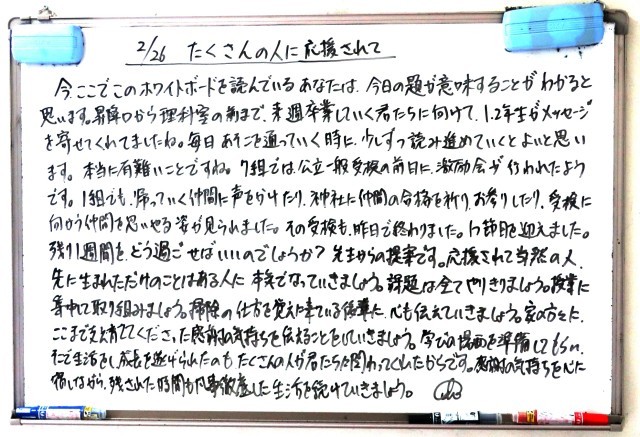 2/26 たくさんの人に応援されて
今、ここでこのホワイトボードを読んでいるあなたは、今日の題が意味することがわかると
思います。昇降口から理科室の前まで、来週卒業していく君たちに向けて、1.2年生がメッセージ
を寄せてくれてましたね。毎日あそこを通っていく時に、少しずつ読み進めていくとよいと思い
ます。本当に有難いことですね。7組では公立一般受検の前日に、激励会が行われたよう
です。1組でも、帰っていく仲間に声をかけたり、神社に仲間の合格を祈り、お参りしたり、受検に
向かう仲間を思いやる姿が見られました。その受検も、昨日で終わりました。1つ節目を迎えました。
残り1週間を、どう過ごせばいいのでしょうか? 先生からの提案です。応援されて当然の人、
先に生まれただけのことはある人に本気でなっていきましょう。課題は全てやりきりましょう。授業に
集中して取り組みましょう。掃除の仕方を覚えに来ている後輩に、心も伝えていきましょう。家の方々に、
ここまで支え育ててくださった感謝の気持ちを伝えることをしていきましょう。学びの場面を準備してもらい、
そこで生活をし、成長を遂げられたのもたくさんの人が君たちに関わってくれたからです。感謝の気持ちを心に
宿しながら、残された時間も凡事徹底した生活を続けていきましょう。